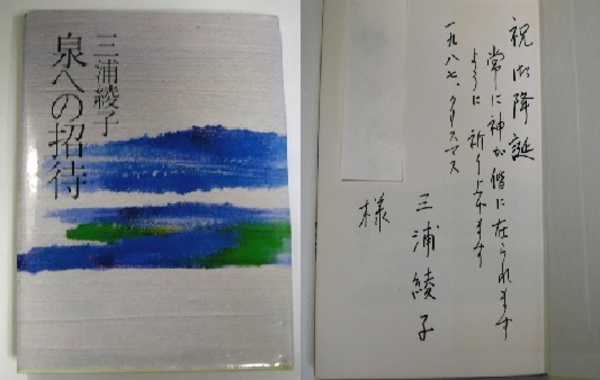 三浦綾子
泉への招待
祝御降誕
常に神が偕に在られます
ように祈り上げます
一九八七、クリスマス
三浦綾子
様